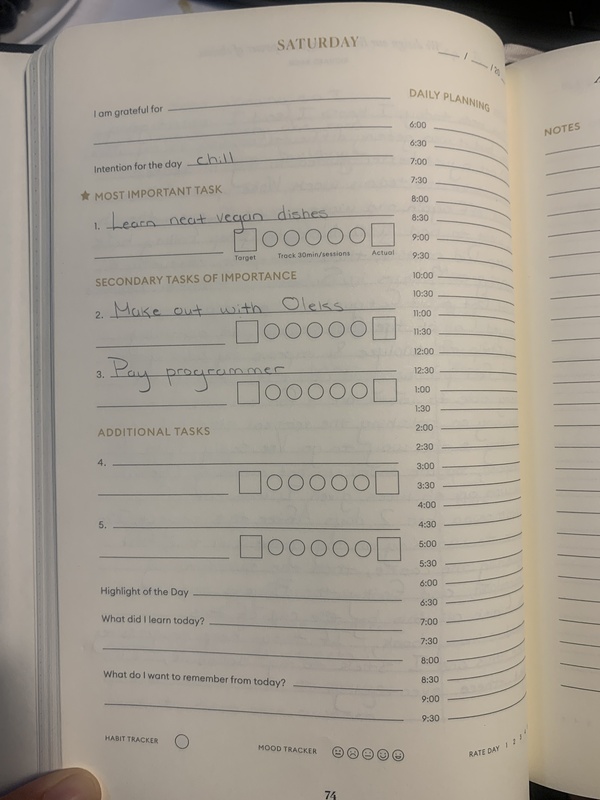 SATURDAY
__ / __ /20
I am grateful for
Intention for the day chill
★ MOST IMPORTANT TASK
1. Learn neat vegan dishes
Target Track 30min/sessions Actual
SECONDARY TASKS OF IMPORTANCE
2. Make out with
3. Pay programmer
ADDITIONAL TASKS
4.
5.
Highlight of the Day
What did I learn today?
What do I want to remember from today?
HABIT TRACKER
MOOD TRACKER
RATE DAY 1 2 3
74
DAILY PLANNING
6:00
6:30
7:00
7:30
8:00
8:30
9:00
9:30
10:00
10:30
11:00
11:30
12:00
12:30
1:00
1:30
2:00
2:30
3:00
3:30
4:00
4:30
5:00
5:30
6:00
6:30
7:00
7:30
8:00
8:30
9:00
9:30
NOTES